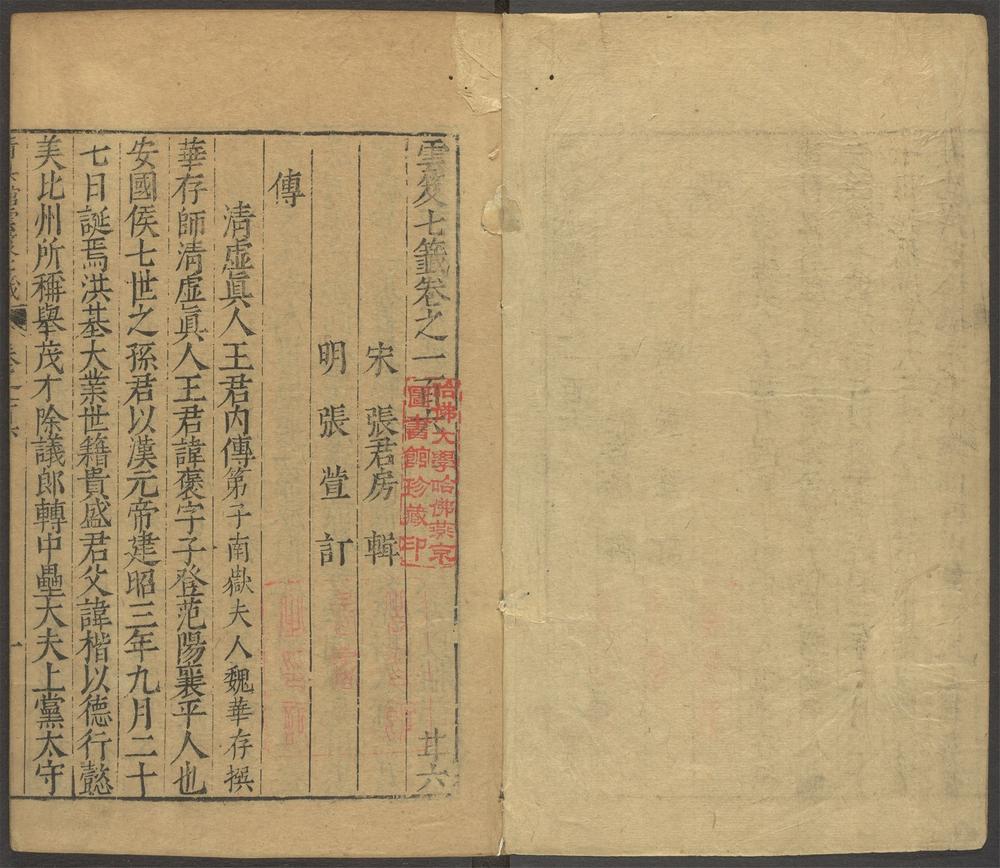 雲笈七籤卷之一百六
廿六
宋 張君房 輯
明 張萱 訂
傳
清虛眞人王君内傳 第子南嶽夫人魏華存撰
華存師清虛眞人王君諱褒字子登范陽襄平人也
安國侯七世之孫君以漢元帝建昭三年九月二十
七日誕焉洪基大業世籍貴盛君父諱楷以德行懿
美比州所稱舉茂才除議郎轉中壘大夫上黨太守
哈佛大學哈佛燕京
圖書館珍藏印